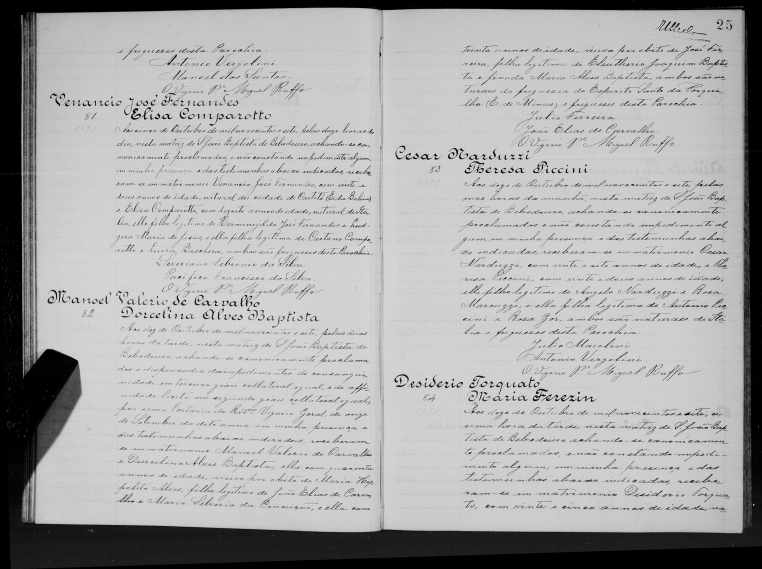 e freguezes desta Parochia.
Antonio Vergolini
Manoel dos Santos
O Vigro Pe Miguel Ruffo
Venancio José Fernandes
81 Elisa Comparotto
dia, nesta matriz de S João Baptista de Bebedouro, achando-se ca-
nonicamente proclamados, e não constando impedimento algum
em minha presença e das testemunhas abaixo indicadas, recebe-
ram-se em matrimonio Venancio José Fernandes, com vinte e
e Elisa Comparotto, com dezoito annos de idade, natural da Ita-
lia, elle filho legitimo de José Fernandes e
Maria de Jesus, e ella filha legitima de Caetano Compa-
rotto e Parochia.
da Silva
Francisco da Silva
O Vigro Pe Miguel Ruffo
Manoel Valerio de Carvalho
82 Dorcelina Alves Baptista
Aos doze de Outubro de mil novecentos e sete, pelas duas
horas da tarde, nesta matriz de S João Baptista de
Bebedouro, achando-se canonicamente proclama-
dos e dispensados do impedimento de consangui-
nidade em terceiro grau collateral igual, e de affi-
nidade licita em segundo grau collateral igual,
por uma Portaria do Rdmo Vigario Geral de onze
de Setembro do dito anno em minha presença e
das testemunhas abaixo indicadas receberam-
se em matrimonio Manoel Valerio de Carvalho
e Dorcelina Alves Baptista, elle com quarenta
annos de idade, viuvo por obito de Maria Hyp-
polita Alves, filho legitimo de João Elias de Carva-
lho e Maria Silveria da Conceição, e ella com
25
trinta annos de idade, viuva por obito de José Fer-
reira, filha legitima de Eleutherio Joaquim Baptis-
ta e finada Maria Alves Baptista, ambos são na-
turaes da freguezia do Espirito Santo da Forqui-
lha E. de Minas, e freguezes desta Parochia.
Julio Ferreira
João Elias de Carvalho
O Vigro Pe Miguel Ruffo
Cesar Narduzzi
83 Theresa Piccini
Aos doze de Outubro de mil novecentos e sete pelas
onze horas da manhã, nesta matriz de S João Bap-
tista de Bebedouro, achando-se canonicamente
proclamados e não constando impedimento al-
gum em minha presença e das testemunhas abai-
xo indicadas receberam-se em matrimonio Cesar
Narduzzi, com vinte e sete annos de idade, e The-
resa Piccini, com vinte e dous annos de idade,
elle filho legitimo de Angelo Narduzzi e Rosa
e ella filha legitima de Antonio Pic-
cini e Rosa ambos são naturaes da Ita-
lia e freguezes desta Parochia
Julio
Antonio Vergolini
O Vigro Pe Miguel Ruffo
Desiderio Torquato
84 Maria Ferezin
Aos doze de Outubro de mil novecentos e sete, á
uma hora da tarde, nesta matriz de S João Bap-
tista de Bebedouro achando-se canonicamen-
te proclamados, e não constando impedi-
mento algum, em minha presença e das
testemunhas abaixo indicadas, recebe-
ram-se em matrimonio Desiderio Torqua-
to, com vinte e cinco annos de idade, na-